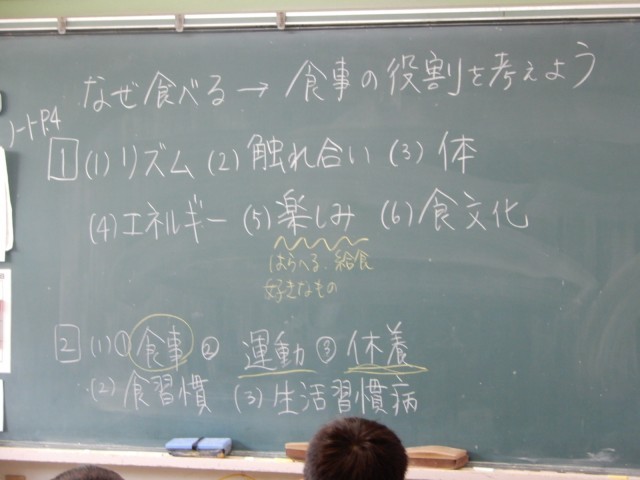 なぜ食べる → 食事の役割を考えよう
ノートP.4
1 (1) リズム (2) 触れ合い (3) 体
(4) エネルギー (5) 楽しみ (6) 食文化
はらへる、給食
好きなもの
2 (1) ① 食事 ② 運動 ③ 休養
(2) 食習慣 (3) 生活習慣病